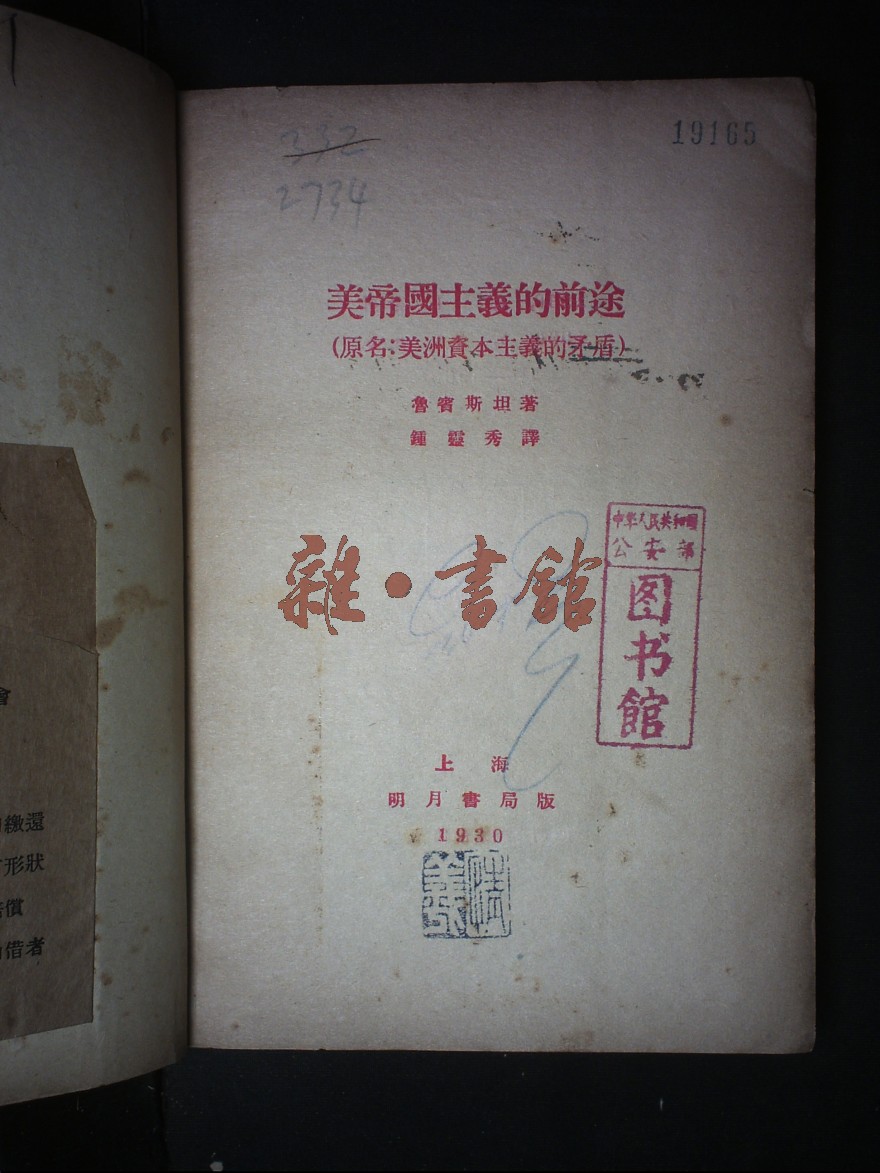 332
2734
19165
美帝國主義的前途
(原名:美洲資本主義的矛盾)
魯賓斯坦著
鍾靈秀譯
雜·書館
中华人民共和國
公安部
图书馆
上海
明月書局版
1930
繳還
形狀
償
借者